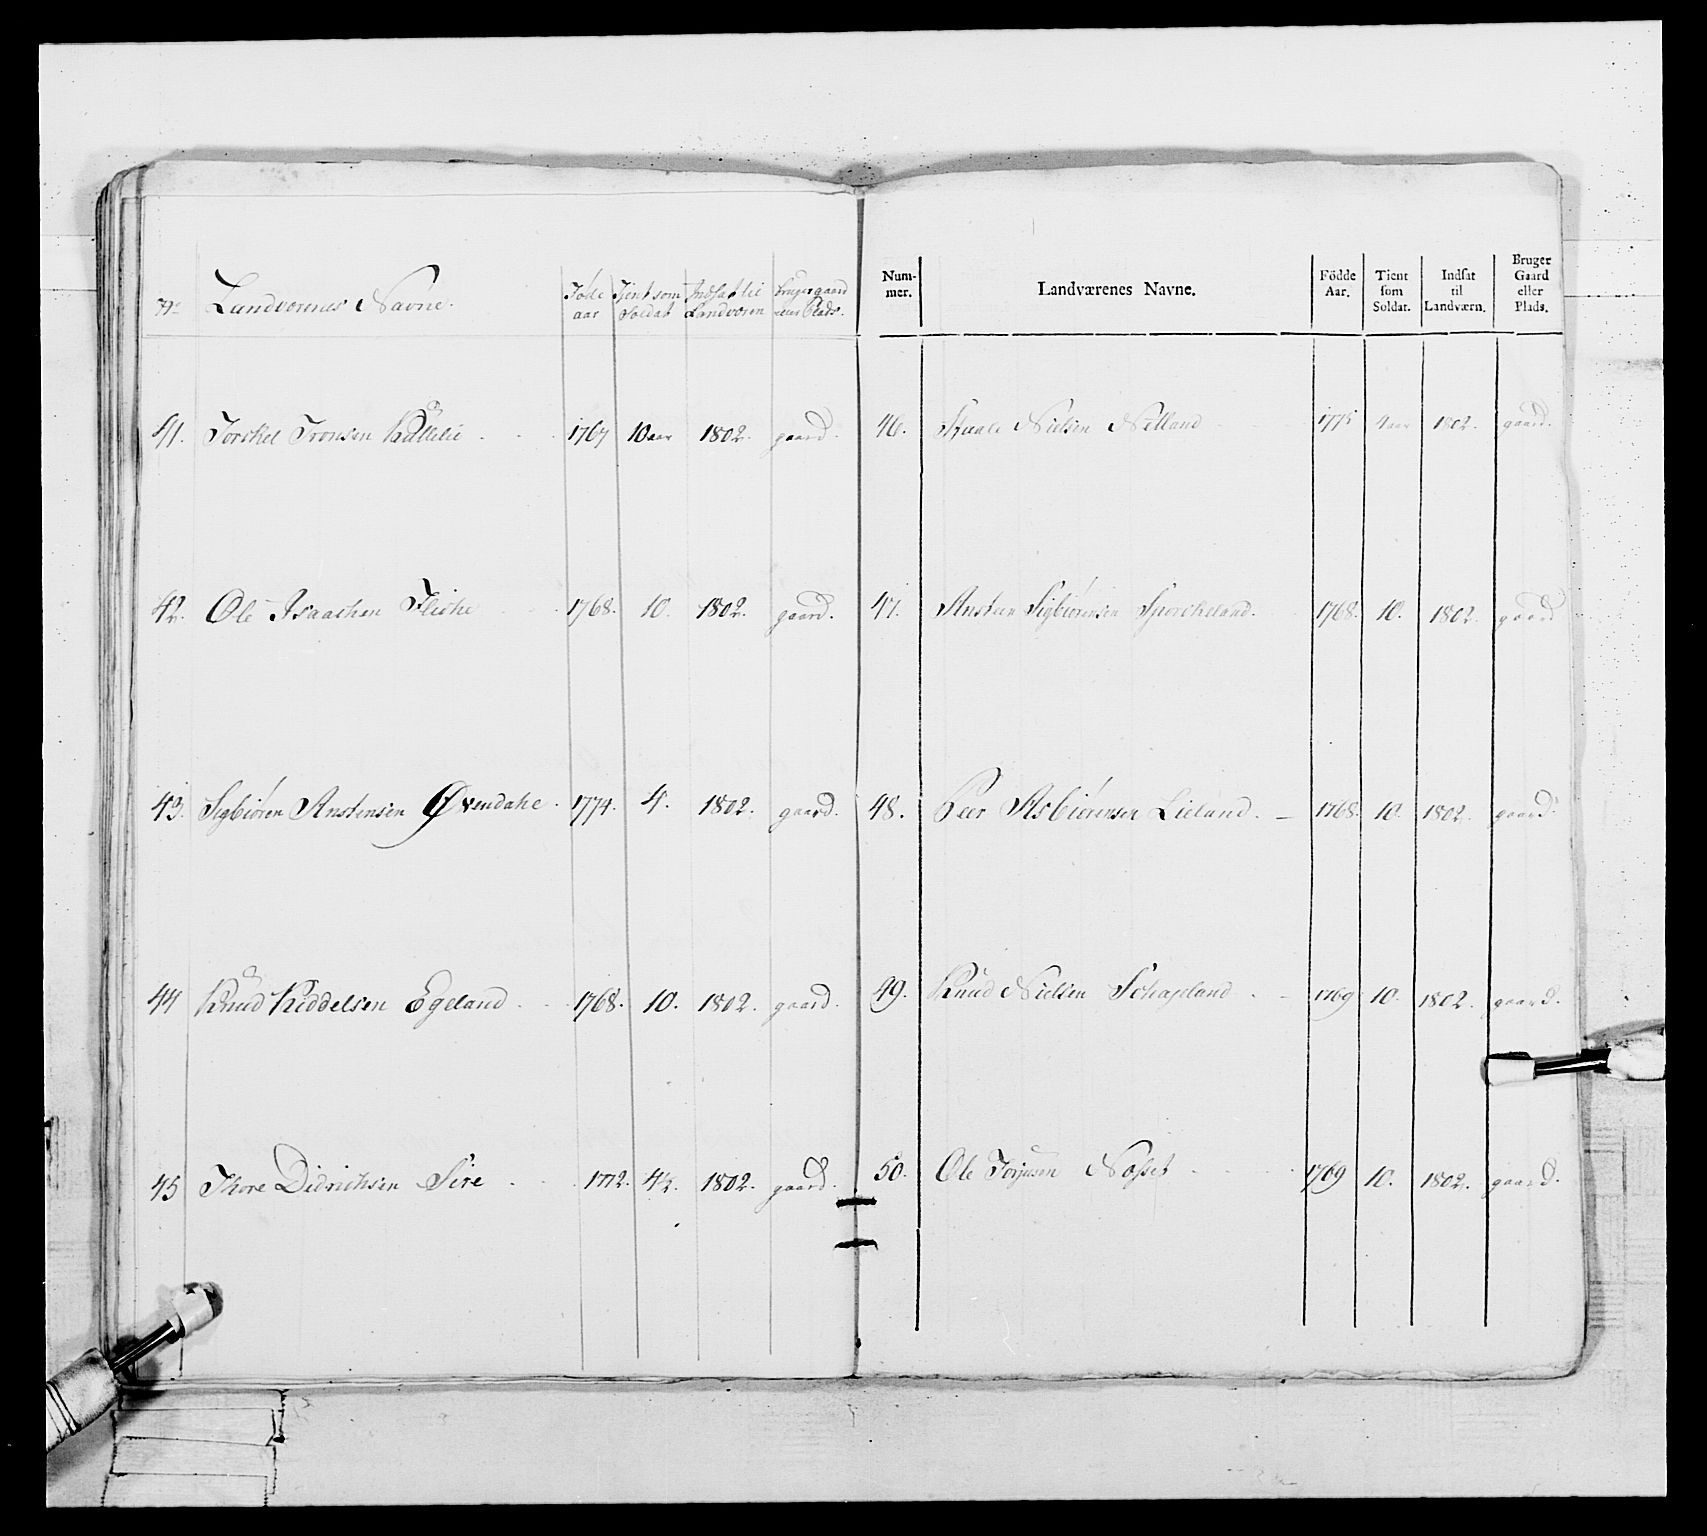 No Landvørenes Navne. Føde aar Tjent som Soldat Indsat til Landvøren bruger gaard eller Plads.
41. Torckel Tronsen 1767 10 aar 1802. gaard.
42. Ole Isaachsen Fliske 1768. 10. 1802. gaard.
43. Sigbiøren Anstensen Øxendahl. 1774. 4. 1802. gaard.
44 Knud Keddelsen Egeland 1768. 10. 1802. gaard.
45 Thore Didrichsen Sire 1772. 4½. 1802. gaard.
Num-mer. Landværenes Navne. Födde Aar. Tient som Soldat. Indsat til Landværn. Bruger Gaard eller Plads.
46. Staale Nielsen Netland 1775 4 aar 1802. gaard.
47. Ansten Sigbiørensen Sporckeland. 1768. 10. 1802. gaard
48. Peer Asbiørensen Lieland. 1768. 10. 1802. gaard.
49. Knud Nielsen Schapland 1769 10. 1802. gaard.
50. Ole Torjusen Nosset 1769 10. 1802. gaard.